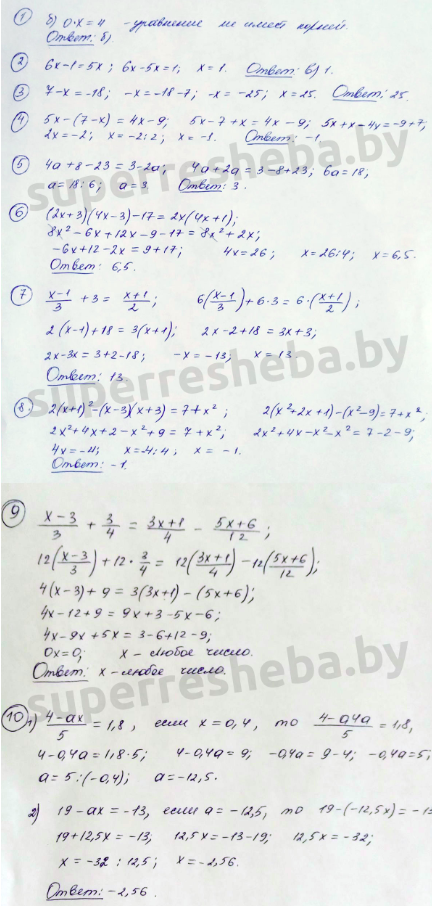 1 б) 0·x = 4 - уравнение не имеет корней.
Ответ: б)
2 6x-1=5x; 6x-5x=1; x=1. Ответ: в) 1.
3 7-x=-18; -x=-18-7; -x=-25; x=25. Ответ: 25.
4 5x-(7-x)=4x-9; 5x-7+x=4x-9; 5x+x-4x=-9+7;
2x=-2; x=-2:2; x=-1. Ответ: -1
5 4a+8-23=3-2a; 4a+2a=3-8+23; 6a=18;
a=18:6; a=3. Ответ: 3.
6 (2x+3)(4x-3)-17=2x(4x+1);
8x²-6x+12x-9-17=8x²+2x;
-6x+12-2x=9+17; 4x=26; x=26:4; x=6,5.
Ответ: 6,5.
7 (x-1)/3 + 3 = (x+1)/2; 6((x-1)/3)+6·3=6·((x+1)/2);
2(x-1)+18=3(x+1); 2x-2+18=3x+3;
2x-3x=3+2-18; -x=-13; x=13.
Ответ: 13.
8 2(x+1)²-(x-3)(x+3)=7+x²; 2(x²+2x+1)-(x²-9)=7+x²;
2x²+4x+2-x²+9=7+x²; 2x²+4x-x²-x²=7-2-9;
4x=-4; x=-4:4; x=-1.
Ответ: -1.
9 (x-3)/3 + 3/4 = (3x+1)/4 - (5x+6)/12;
12((x-3)/3)+12·3/4=12((3x+1)/4)-12((5x+6)/12);
4(x-3)+9=3(3x+1)-(5x+6);
4x-12+9=9x+3-5x-6;
4x-9x+5x=3-6+12-9;
0x=0; x - любое число.
Ответ: x - любое число.
10 1) (4-ax)/5=1,8, если x=0,4, то (4-0,4a)/5=1,8,
4-0,4a=1,8·5; 4-0,4a=9; -0,4a=9-4; -0,4a=5;
a=5:(-0,4); a=-12,5.
2) 19-ax=-13, если a=-12,5, то 19-(-12,5x)=-13
19+12,5x=-13; 12,5x=-13-19; 12,5x=-32;
x=-32:12,5; x=-2,56.
Ответ: -2,56.
superresheba.by
superresheba.by
superresheba.by
superresheba.by